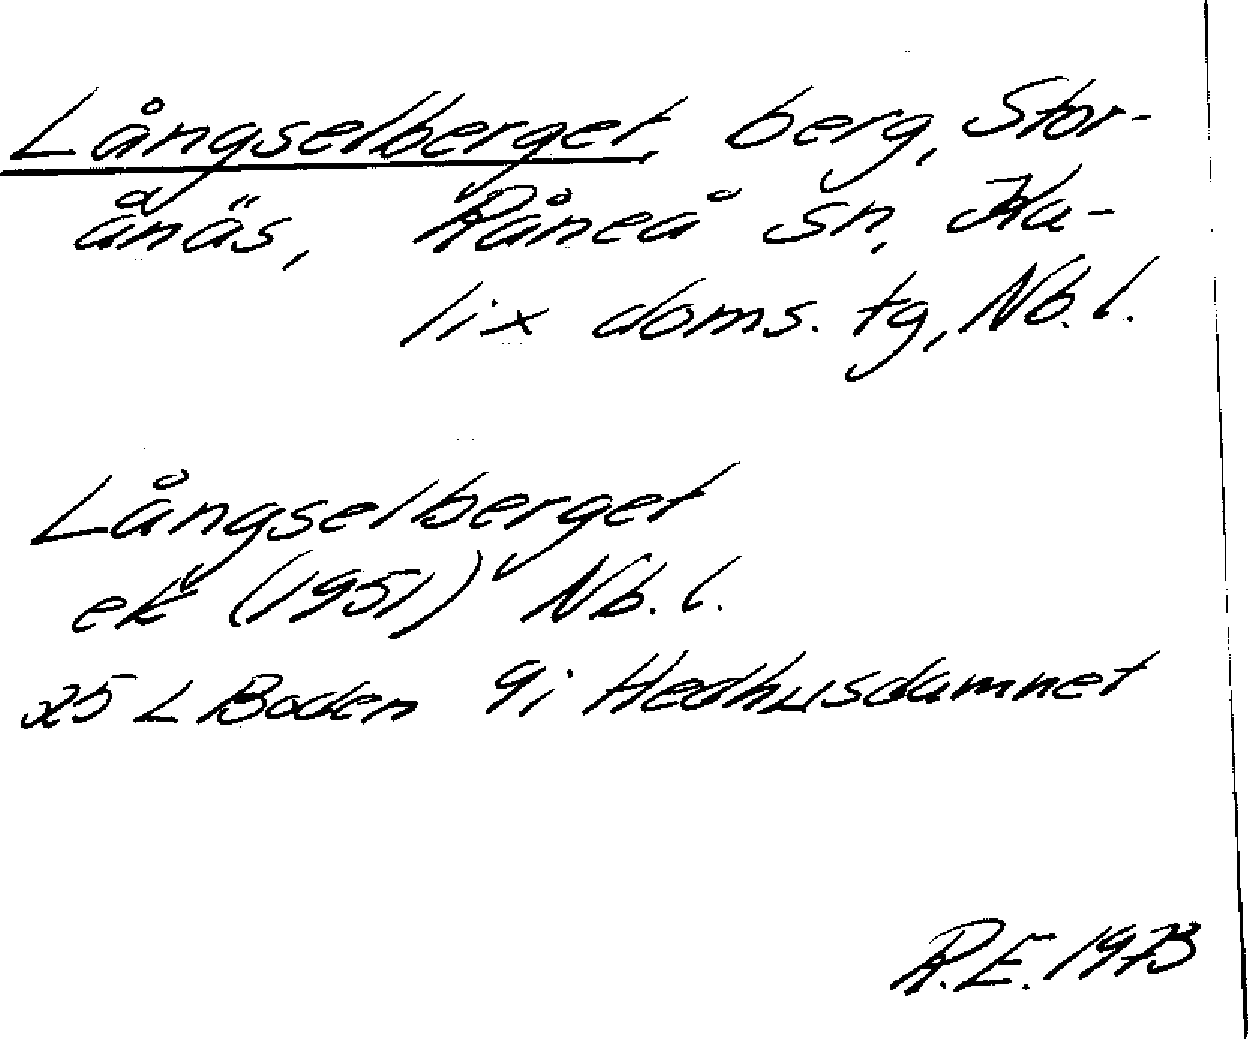 Långselberget, berg, Stor-
ånäs, Råneå sn, Ka-
lix doms. tg, Nb. l.
Långselberget
ek (1951) Nb. l.
25 L Boden 9i Hedhusdamnet
R.E. 1973